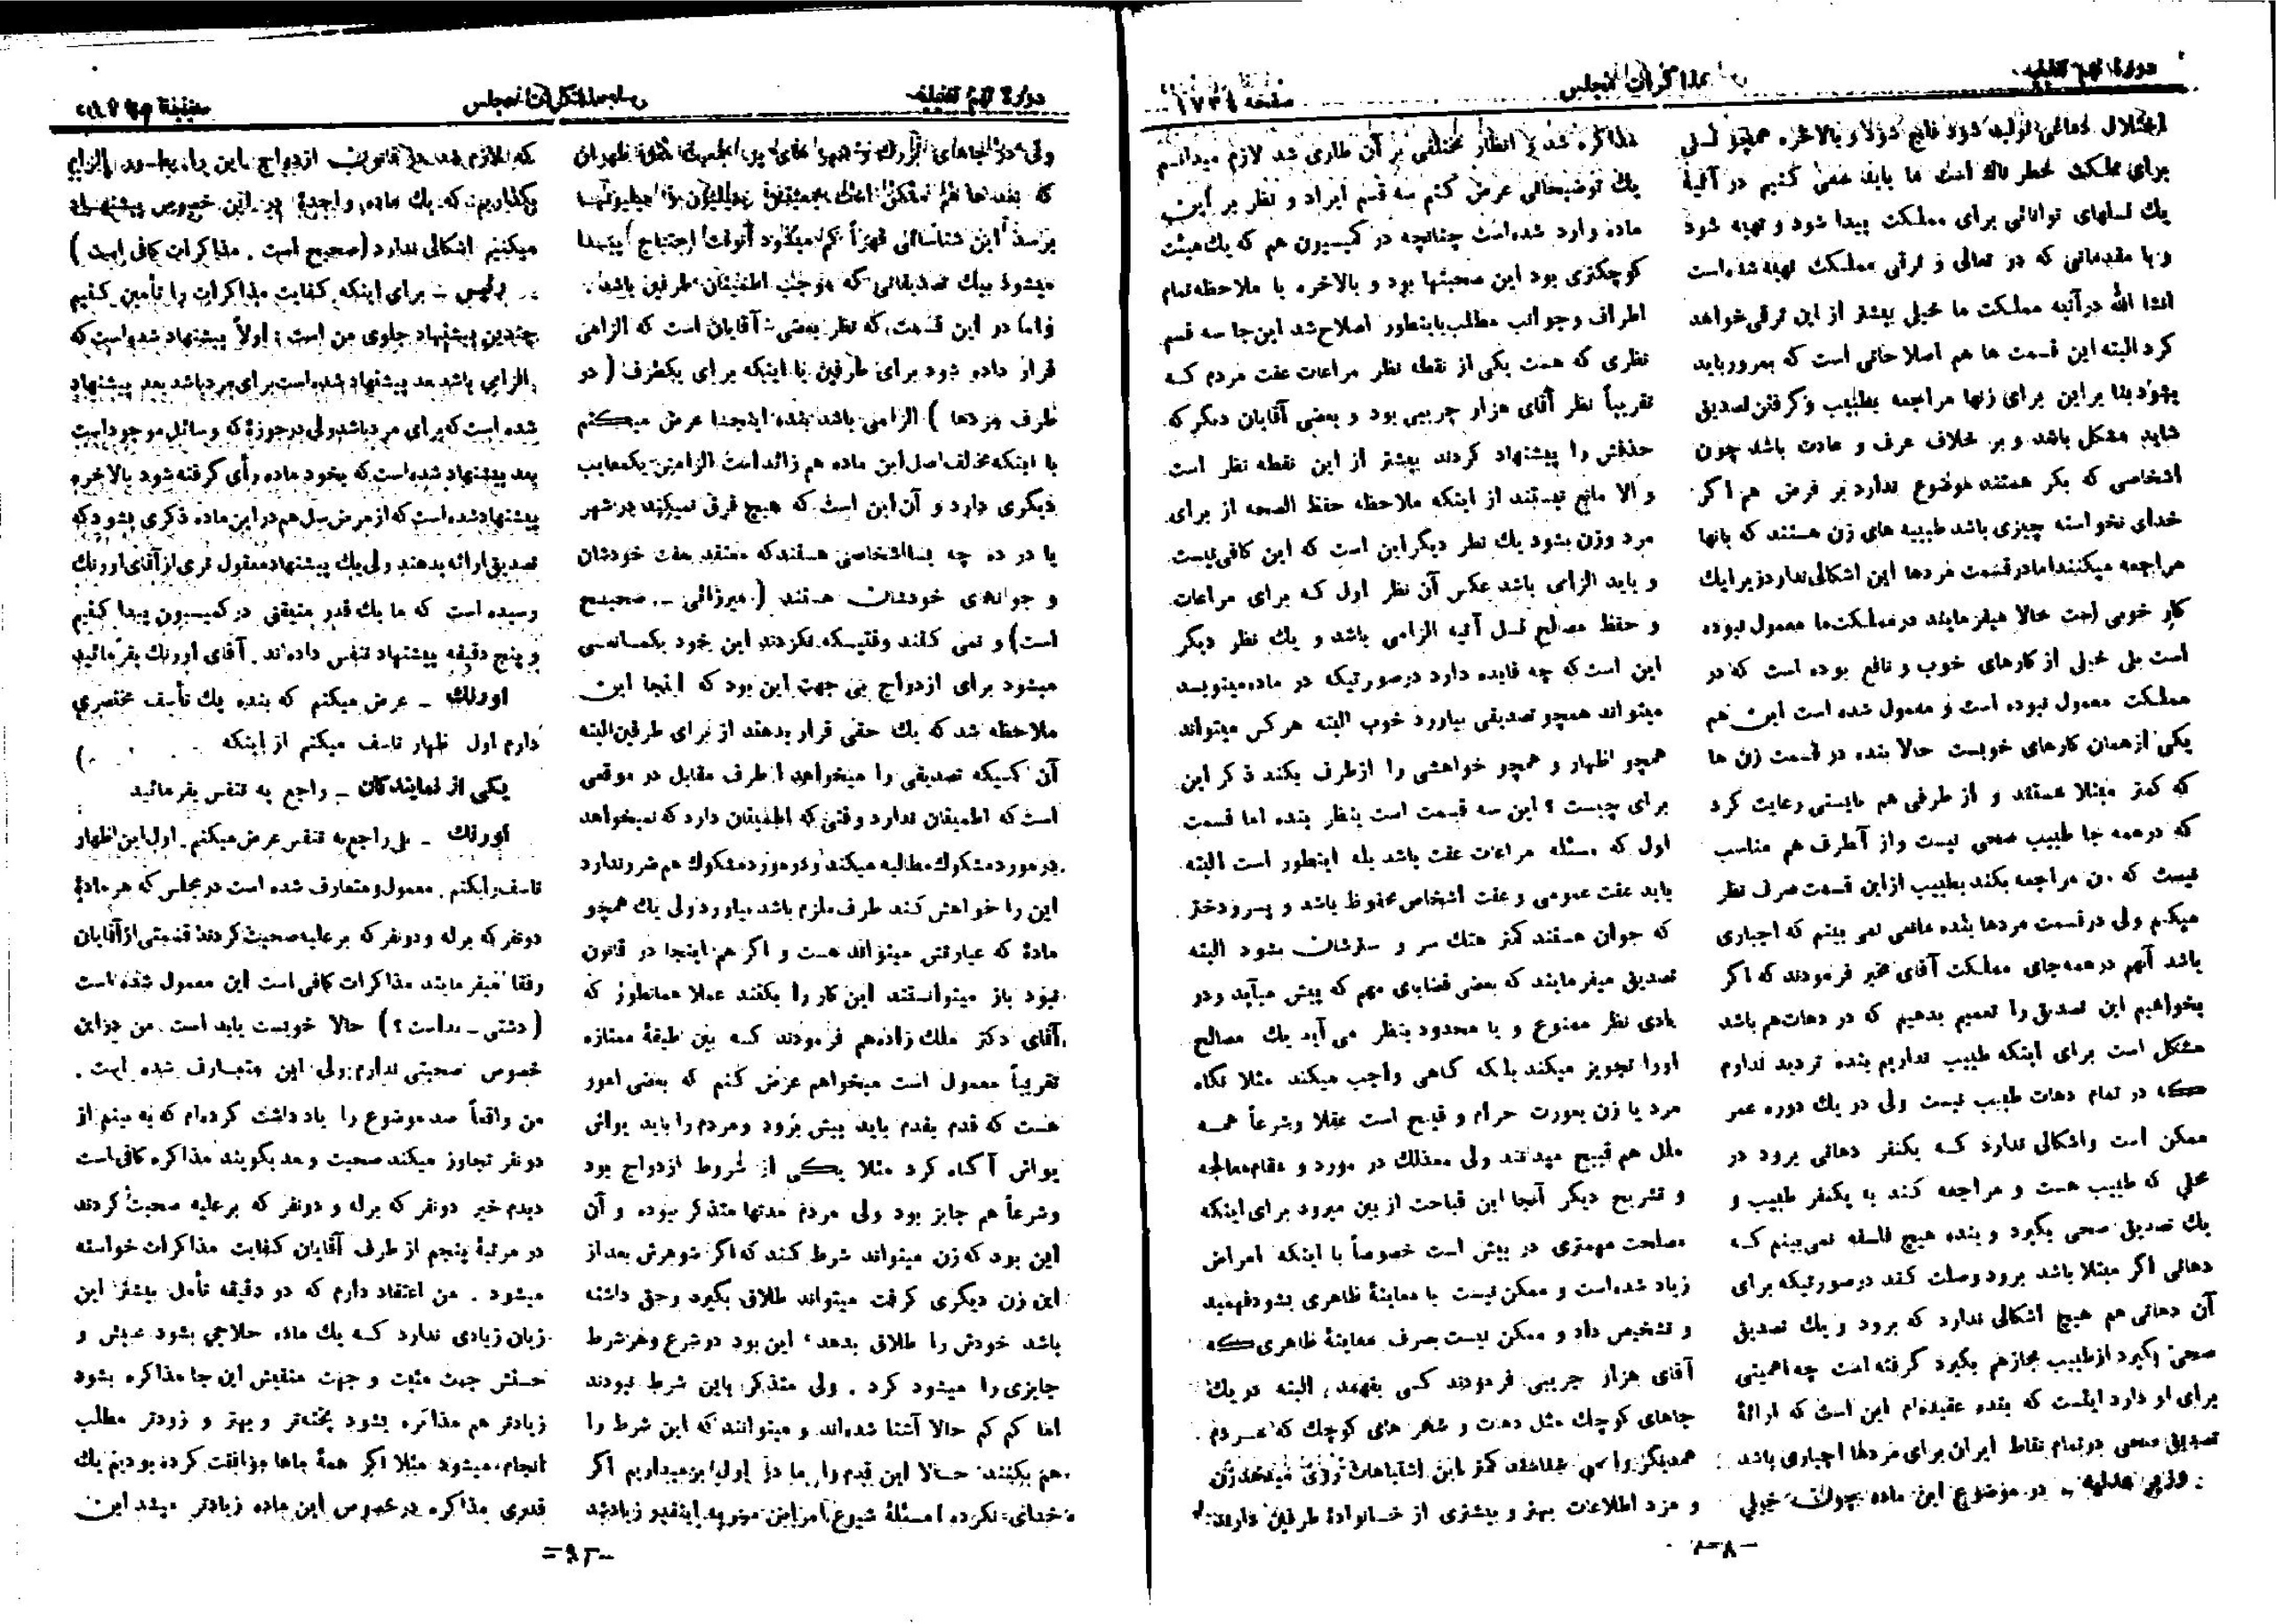 دوره نهم تقنینیه
مذاکرات مجلس
صفحه ۱۷۳۴
اختلال دماغی تولید شود فلج شود و بالاخره همچو نسلی
برای مملکت خطرناك است ما باید سعی کنیم در آتیهٔ
یك نسلهای توانائی برای مملکت پیدا شود و تهیه شود
و با مقدماتی که در تعالی و ترقی مملکت تهیه شده است
انشا الله در آتیه مملکت ما خیلی بیشتر از این ترقی خواهد
کرد البته این قسمت ها هم اصلاحاتی است که بمرور باید
بشود بنا بر این برای زنها مراجعه بطبیب و گرفتن تصدیق
شاید مشکل باشد و بر خلاف عرف و عادت باشد چون
اشخاصی که بکر هستند موضوع ندارد بر فرض هم اگر
خدای نخواسته چیزی باشد طبیبه های زن هستند که بانها
مراجعه میکنند اما در قسمت مردها این اشکالی ندارد زیرا یك
کار خوبی است حالا میفرمایند در مملکت ما معمول نبوده
است بلی خیلی از کارهای خوب و نافع بوده است که در
مملکت معمول نبوده است و معمول شده است این هم
یکی از همان کارهای خوبست حالا بنده در قسمت زن ها
که کمتر مبتلا هستند و از طرفی هم بایستی رعایت کرد
که در همه جا طبیب صحی نیست و از آنطرف هم مناسب
نیست که زن مراجعه بکند بطبیب از این قسمت صرف نظر
میکنم ولی در قسمت مردها بنده مانعی نمی بینم که اجباری
باشد آنهم در همه جای مملکت آقای مخبر فرمودند که اگر
بخواهیم این تصدیق را تعمیم بدهیم که در دهات هم باشد
مشکل است برای اینکه طبیب نداریم بنده تردید ندارم
که در تمام دهات طبیب نیست ولی در یك دوره عمر
ممکن است و اشکالی ندارد که یکنفر دهاتی برود در
محلی که طبیب هست و مراجعه کند به یکنفر طبیب و
یك تصدیق صحی بگیرد و بنده هیچ فلسفه نمی بینم که
دهاتی اگر مبتلا باشد برود وصلت کند در صورتیکه برای
آن دهاتی هم هیچ اشکالی ندارد که برود و یك تصدیق
صحی بگیرد از طبیب مجاز هم بگیرد گرفته است چه اهمیتی
برای او دارد اینست که بنده عقیده‌ام این است که ارائهٔ
تصدیق صحی در تمام نقاط ایران برای مردها اجباری باشد
وزیر عدلیه ـ در موضوع این ماده چون خیلی
مذاکره شد و انظار مختلفی بر آن طاری شد لازم میدانم
یك توضیحاتی عرض کنم سه قسم ایراد و نظر بر این
ماده وارد شده است چنانچه در کمیسیون هم که یك هیئت
کوچکتری بود این صحبتها بود و بالاخره با ملاحظه تمام
اطراف و جوانب مطلب باینطور اصلاح شد این جا سه قسم
نظری که هست یکی از نقطه نظر مراعات عفت مردم که
تقریباً نظر آقای هزار جریبی بود و بعضی آقایان دیگر که
حذفش را پیشنهاد کردند بیشتر از این نقطه نظر است
و الا مانع نیستند از اینکه ملاحظه حفظ الصحه از برای
مرد و زن بشود یك نظر دیگر این است که این کافی نیست
و باید الزامی باشد عکس آن نظر اول که برای مراعات
و حفظ مصالح نسل آتیه الزامی باشد و یك نظر دیگر
این است که چه فایده دارد در صورتیکه در ماده مینویسد
میتواند همچو تصدیقی بیاورد خوب البته هر کس میتواند
همچو اظهار و همچو خواهشی را از طرف بکند ذکر این
برای چیست ؟ این سه قسمت است بنظر بنده اما قسمت
اول که مسئله مراعات عفت باشد بله اینطور است البته
باید عفت عمومی و عفت اشخاص محفوظ باشد و پسر و دختر
که جوان هستند کمتر هتك سر و سترشان بشود البته
تصدیق میفرمایند که بعضی قضایای مهم که پیش میآید و در
بادی نظر ممنوع و یا محدود بنظر می آید یك مصالح
اورا تجویز میکند بلکه گاهی واجب میکند مثلا نگاه
مرد یا زن بعورت حرام و قبیح است عقلا و شرعاً همه
ملل هم قبیح میدانند ولی معذلك در مورد و مقام معالجه
و تشریح دیگر آنجا این قباحت از بین میرود برای اینکه
مصلحت مهمتری در پیش است خصوصاً با اینکه امراض
زیاد شده است و ممکن نیست با معاینهٔ ظاهری بشود فهمید
و تشخیص داد و ممکن نیست بصرف معاینهٔ ظاهری که
آقای هزار جریبی فرمودند کسی بفهمد، البته در یك
جاهای کوچك مثل دهات و شهر های کوچك که مردم
همدیگر را می شناسند کمتر این اشتباهات روی میدهد زن
و مرد اطلاعات بهتر و بیشتری از خانوادهٔ طرفین دارند
ـ ۸ ـ
دوره نهم تقنینیه
مذاکرات مجلس
ولی در جاهای بزرك و شهر های پر جمعیت مثل طهران
که بعدها هم ممکن است جمعیتش بمیلیون یا میلیونها
برسد این شناسائی قهراً کم میشود آنوقت احتیاج پیدا
میشود بیك تصدیقاتی که موجب اطمینان طرفین باشد.
و اما در این قسمت، که نظر بعضی آقایان است که الزامی
قرار داده شود برای طرفین یا اینکه برای یکطرف (در
طرف مردها) الزامی باشد بنده اینجا عرض میکنم
با اینکه مخالف اصل این ماده هم زائد است الزامی یك معایب
دیگری دارد و آن این است که هیچ فرق نمیکند در شهر
یا در ده چه بسا اشخاصی هستند که معتقد عفت خودشان
و جوانهای خودشان هستند (میرزائی ـ صحیح
است) و نمی کنند وقتیکه نکردند این خود یکمانعی
میشود برای ازدواج بی جهت این بود که اینجا این
ملاحظه شد که یك حقی قرار بدهند از برای طرفین البته
آن کسیکه تصدیقی را میخواهد از طرف مقابل در موقعی
است که اطمینان ندارد وقتی که اطمینان دارد که نمیخواهد
در مورد مشکوك مطالبه میکند و در مورد مشکوك هم ضرر ندارد
این را خواهش کند طرف ملزم باشد بیاورد ولی یك همچو
مادهٔ که عبارتش میتواند هست و اگر هم اینجا در قانون
نبود باز میتوانستند این کار را بکنند عملا همانطور که
آقای دکتر ملك زاده هم فرمودند که بین طبقهٔ ممتازه
تقریباً معمول است میخواهم عرض کنم که بعضی امور
هست که قدم بقدم باید پیش برود و مردم را باید یواش
یواش آگاه کرد مثلا یکی از شروط ازدواج بود
و شرعاً هم جایز بود ولی مردم مدتها متذکر نبوده و آن
این بود که زن میتواند شرط کند که اگر شوهرش بعد از
این زن دیگری گرفت میتواند طلاق بگیرد و حق داشته
باشد خودش را طلاق بدهد، این بود در شرع و هر شرط
جایزی را میشود کرد. ولی متذکر باین شرط نبودند
اما کم کم حالا آشنا شده‌اند و میتوانند که این شرط را
هم بکنند حالا این قدم را ما در اول برمیداریم اگر
خدای نکرده مسئلهٔ شیوع امراض اینقدر زیاد شد
که لازم شد در قانون ازدواج این را بطور الزام
بگذاریم، که یك ماده واحدهٔ در این خصوص پیشنهاد
میکنیم اشکالی ندارد (صحیح است. مذاکرات کافی است)
رئیس ـ برای اینکه کفایت مذاکرات را تأمین کنیم
چندین پیشنهاد جلوی من است: اولاً پیشنهاد شده است که
الزامی باشد بعد پیشنهاد شده است برای مرد باشد بعد پیشنهاد
شده است که برای مرد باشد ولی در حوزهٔ که وسائل موجود است
بعد پیشنهاد شده است که بخود ماده رأی گرفته شود بالاخره
پیشنهاد شده است که از مرض سل هم در این ماده ذکری بشود که
تصدیق ارائه بدهند ولی یك پیشنهاد معقول تری از آقای اورنك
رسیده است که ما یك قدر متیقنی در کمیسیون پیدا کنیم
و پنج دقیقه پیشنهاد تنفس داده‌اند. آقای اورنك بفرمائید
اورنك ـ عرض میکنم که بنده یك تأسف مختصری
دارم اول اظهار تاسف میکنم از اینکه . . . .)
یکی از نمایندگان ـ راجع به تنفس بفرمائید
اورنك ـ بلی راجع به تنفس عرض میکنم. اول این اظهار
تاسف را بکنم. معمول و متعارف شده است در مجلس که هر مادهٔ
دو نفر که بر له و دو نفر که بر علیه صحبت کردند قسمتی از آقایان
رفقا میفرمایند مذاکرات کافی است این معمول شده است
(دشتی ـ بد است ؟) حالا خوبست یا بد است. من در این
خصوص صحبتی ندارم ولی این متعارف شده است.
من واقعاً صد موضوع را یادداشت کرده‌ام که به بینم از
دو نفر تجاوز میکند صحبت و بعد بگویند مذاکره کافی است
دیدم خیر دو نفر که بر له و دو نفر که بر علیه صحبت کردند
در مرتبهٔ پنجم از طرف آقایان کفایت مذاکرات خواسته
میشود. من اعتقاد دارم که دو دقیقه تأمل بیشتر این
زیان زیادی ندارد که یك ماده حلاجی بشود عیبش و
حسنش جهت مثبت و جهت منفیش این جا مذاکره بشود
زیادتر هم مذاکره بشود پخته‌تر و بهتر و زودتر مطلب
انجام میشود مثلا اگر همهٔ ماها موافقت کرده بودیم یك
قدری مذاکره در خصوص این ماده زیادتر میشد این